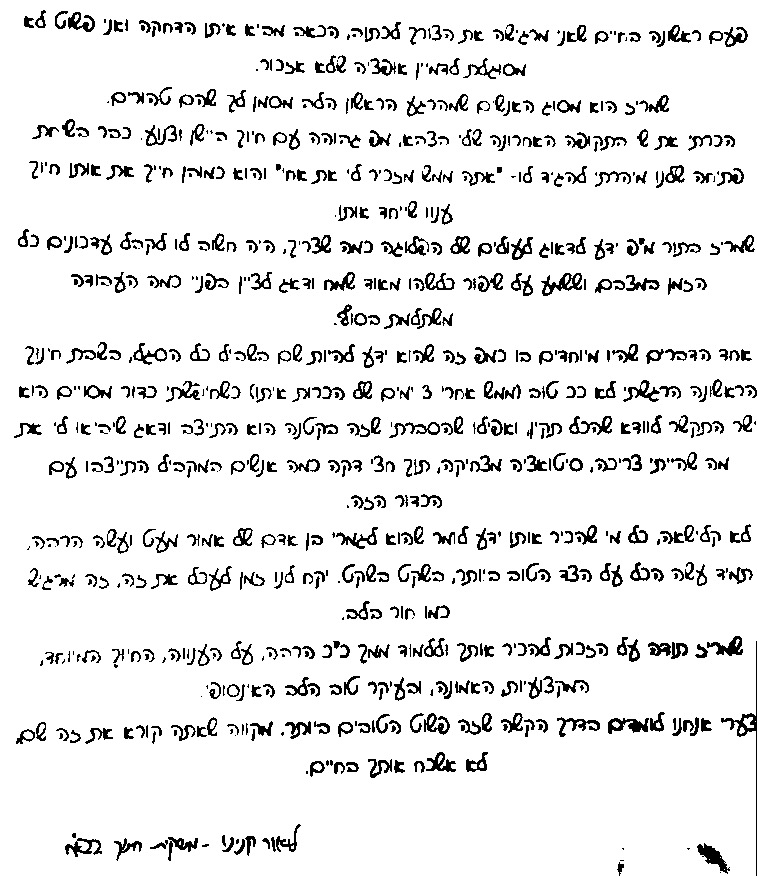 פעם ראשונה בחיים שאני מרגישה את הצורך לכתוב, הכאב מביא איתו הדחקה ואני פשוט לא
מסוגלת לדמיין אופציה שלא אזכור.
שמריז הוא מסוג האנשים שמהרגע הראשון הלב מסמן לך שהם טהורים.
הכרתי את ש התקופה האחרונה שלי בצבא, מפ גבוהה עם חיוך ביישן וצנוע. כבר בשיחת
פתיחה שלנו מיהרתי להגיד לו- "אתה ממש מזכיר לי את אחי" והוא כמובן חייך את אותו חיוך
ענוו שייחד אותו.
שמריז בתור מ"פ ידע לדאוג לעולים של הפלוגה כמה שצריך, היה חשוב לו לקבל עדכונים כל
הזמן במצבם, וששמע על שיפור כלשהו מאוד שמח ודאג לציין בפניי כמה העבודה
משתלמת בסוף.
אחד הדברים שהיו מיוחדים בו כמפ זה שהוא ידע להיות שם בשביל כל הסגל, בשבת חינוך
הראשונה הרגשתי לא ככ טוב (ממש אחרי 3 ימים של הכרות איתו) כשחיפשתי כדור מסויים הוא
ישר התקשר לוודא שהכל תקין, ואפילו שהסברתי שזה בקטנה הוא התייצב ודאג שיביאו לי את
מה שהייתי צריכה, סיטואציה מצחיקה, תוך חצי דקה כמה אנשים במקביל התייצבו עם
הכדור הזה.
לא קלישאה, כל מי שהכיר אותו ידע לומר שהוא לגמרי בן אדם של אמור מעט ועשה הרבה,
תמיד עשה הכל על הצד הטוב ביותר, בשקט בשקט. יקח לנו זמן לעכל את זה, זה מרגיש
כמו חור בלב.
שמריז תודה על הזכות להכיר אותך וללמוד ממך כ"כ הרבה, על הענווה, החיוך המיוחד,
המקצועיות, האמונה, ובעיקר טוב הלב האינסופי.
צערי אנחנו לומדים בדרך הקשה שזה פשוט הטובים ביותר. מקווה שאתה קורא את זה שם,
לא אשכח אותך בחיים.
ליאור קנינו - משקית חינוך